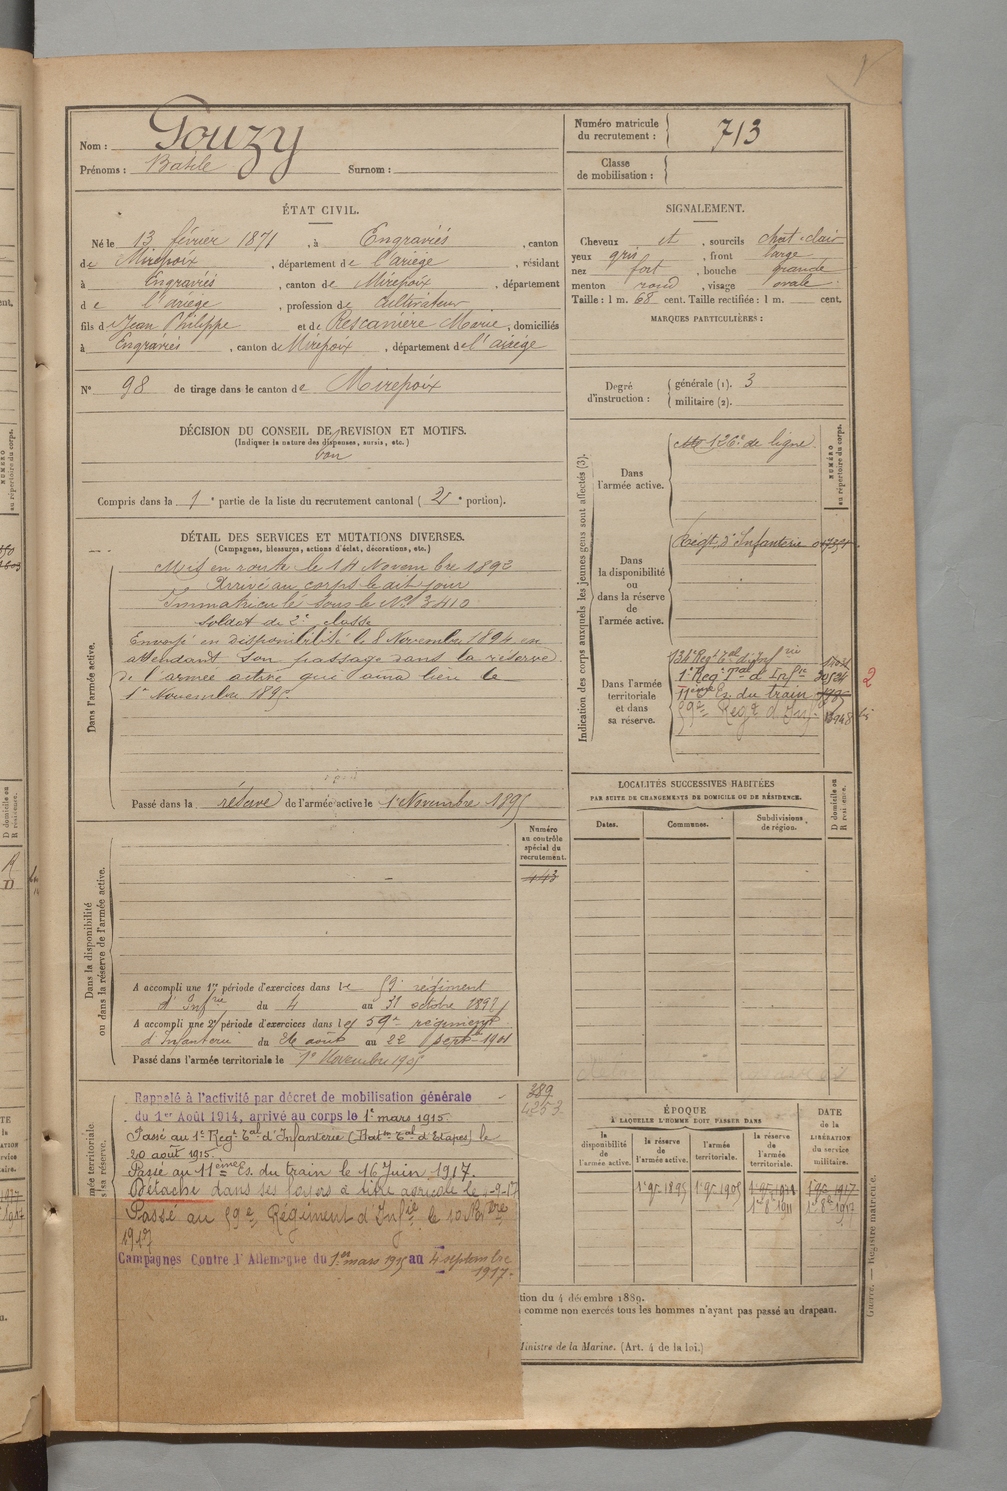 Nom : Gouzy
Prénoms : Basile Surnom :
Numéro matricule du recrutement : 713
Classe de mobilisation :
ÉTAT CIVIL.
Né le 13 février 1871, à Engraviès, canton
de Mirepoix, département de l'ariège, résidant
à Engraviès, canton de Mirepoix, département
de l'ariège, profession de Cultivateur
fils de Jean Philippe et de Rescanière Marie, domiciliés
à Engraviès, canton de Mirepoix, département de l'ariège
N° 98 de tirage dans le canton de Mirepoix
SIGNALEMENT.
Cheveux et, sourcils chat-clair
yeux gris, front large
nez fort, bouche grande
menton rond, visage ovale
Taille : 1 m. 68 cent. Taille rectifiée : 1 m. cent.
MARQUES PARTICULIÈRES :
Degré d'instruction : générale (1). 3
militaire (2).
DÉCISION DU CONSEIL DE REVISION ET MOTIFS.
(Indiquer la nature des dispenses, sursis, etc.)
bon
Compris dans la 1e partie de la liste du recrutement cantonal (2e portion).
DÉTAIL DES SERVICES ET MUTATIONS DIVERSES.
(Campagnes, blessures, actions d'éclat, décorations, etc.)
Dans l'armée active.
Mis en route le 14 Novembre 1892
Arrivé au corps le dit jour
Immatriculé sous le N° 3410
soldat de 2e classe
Envoyé en disponibilité le 8 Novembre 1894 en
attendant son passage dans la réserve
de l'armée active qui aura lieu le
1er Novembre 1895
Passé dans la réserve de l'armée active le 1er Novembre 1895
Indication des corps auxquels les jeunes gens sont affectés (3).
NUMÉRO au répertoire du corps.
Dans l'armée active.
126e de ligne
Dans la disponibilité ou dans la réserve de l'armée active.
Régt. d'Infanterie
Dans l'armée territoriale et dans sa réserve.
134e Regt Tal d'Infrie
1er Regt Tal d'Infie 30524
11ème Es. du train
59e Regt d'Inf.
2
LOCALITÉS SUCCESSIVES HABITÉES
PAR SUITE DE CHANGEMENTS DE DOMICILE OU DE RÉSIDENCE.
Dates. Communes. Subdivisions de région.
D domicile ou R résidence.
Dans la disponibilité ou dans la réserve de l'armée active.
Numéro au contrôle spécial du recrutement.
443
A accompli une 1re période d'exercices dans le 59e régiment
d'Infrie du 4 au 31 octobre 1897
A accompli une 2e période d'exercices dans le 59e régiment
d'Infanterie du 26 août au 22 septbre 1901
Passé dans l'armée territoriale le 1er Novembre 1905
389
4253
Rappelé à l'activité par décret de mobilisation générale
du 1er Août 1914, arrivé au corps le 1er mars 1915.
Passé au 1er Regt Tal d'Infanterie (Baton Tal d'Etapes) le
20 août 1915.
Passé au 11ème Es. du train le 16 Juin 1917.
Détaché dans ses foyers à titre agricole le 4-9-17
Passé au 59e Régiment d'Infie le 10 Nbre
1917
Campagnes Contre l'Allemagne du 1er mars 1915 au 4 septembre
1917.
ÉPOQUE
À LAQUELLE L'HOMME DOIT PASSER DANS
la disponibilité de l'armée active. la réserve de l'armée active. l'armée territoriale. la réserve de l'armée territoriale.
DATE de la LIBÉRATION du service militaire.
1er 9bre 1895 1er 9bre 1905 1er 9bre 1911 1er 9bre 1917
1er 8bre 1911 1er 8bre 1917
tion du 4 décembre 1889.
comme non exercés tous les hommes n'ayant pas passé au drapeau.
Ministre de la Marine. (Art. 4 de la loi.)
Guerre. — Registre matricule.